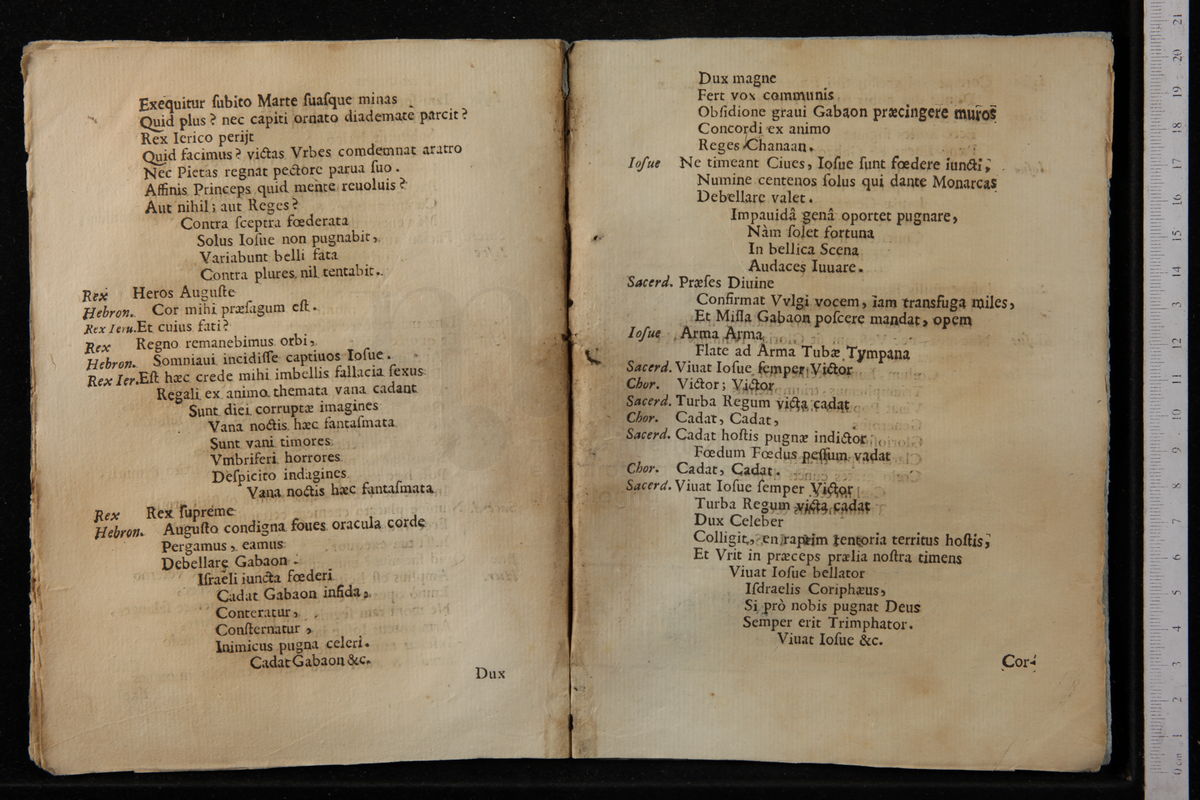 Exequitur ſubito Marte ſuaſque minas
Quid plus? nec capiti ornato diademate parcit?
Rex Ierico perijt
Quid facimus? victas Vrbes comdemnat aratro
Nec Pietas regnat pectore parua ſuo.
Affinis Princeps quid mente reuoluis?
Aut nihil; aut Reges?
Contra ſceptra fœderata
Solus Ioſue non pugnabit,
Variabunt belli fata
Contra plures nil tentabit.
Rex Heros Auguſte
Hebron. Cor mihi præſagum eſt.
Rex Ieru. Et cuius fati?
Rex Regno remanebimus orbi,
Hebron. Somniaui incidiſſe captiuos Ioſue.
Rex Ier. Eſt hæc crede mihi imbellis fallacia ſexus
Regali ex animo themata vana cadant
Sunt diei corruptæ imagines
Vana noctis hæc fantaſmata
Sunt vani timores
Vmbriferi horrores
Deſpicito indagines
Vana noctis hæc fantaſmata
Rex Rex ſupreme
Hebron. Auguſto condigna foues oracula corde
Pergamus, eamus
Debellare Gabaon
Iſraeli iuncta fœderi
Cadat Gabaon infida,
Conteratur,
Conſternatur,
Inimicus pugna celeri.
Cadat Gabaon &c.
Dux
Dux magne
Fert vox communis
Obſidione graui Gabaon præcingere muros
Concordi ex animo
Reges Chanaan.
Ioſue Ne timeant Ciues, Ioſue ſunt fœdere iuncti,
Numine centenos ſolus qui dante Monarcas
Debellare valet.
Impauidâ genâ oportet pugnare,
Nàm ſolet fortuna
In bellica Scena
Audaces Iuuare.
Sacerd. Præſes Diuine
Confirmat Vvlgi vocem, iam transfuga miles,
Et Miſſa Gabaon poſcere mandat, opem
Ioſue Arma Arma
Flate ad Arma Tubæ Tympana
Sacerd. Viuat Ioſue ſemper Victor
Chor. Victor; Victor
Sacerd. Turba Regum victa cadat
Chor. Cadat, Cadat,
Sacerd. Cadat hoſtis pugnæ indictor
Fœdum Fœdus peſſum vadat
Chor. Cadat, Cadat.
Sacerd. Viuat Ioſue ſemper Victor
Turba Regum victa cadat
Dux Celeber
Colligit, en raptim tentoria territus hoſtis,
Et Vrit in præceps prælia noſtra timens
Viuat Ioſue bellator
Iſdraelis Coriphæus,
Si prò nobis pugnat Deus
Semper erit Trimphator.
Viuat Ioſue &c.
Cor-
0 cm 1 2 3 4 5 6 7 8 9 10 11 12 13 14 15 16 17 18 19 20 21